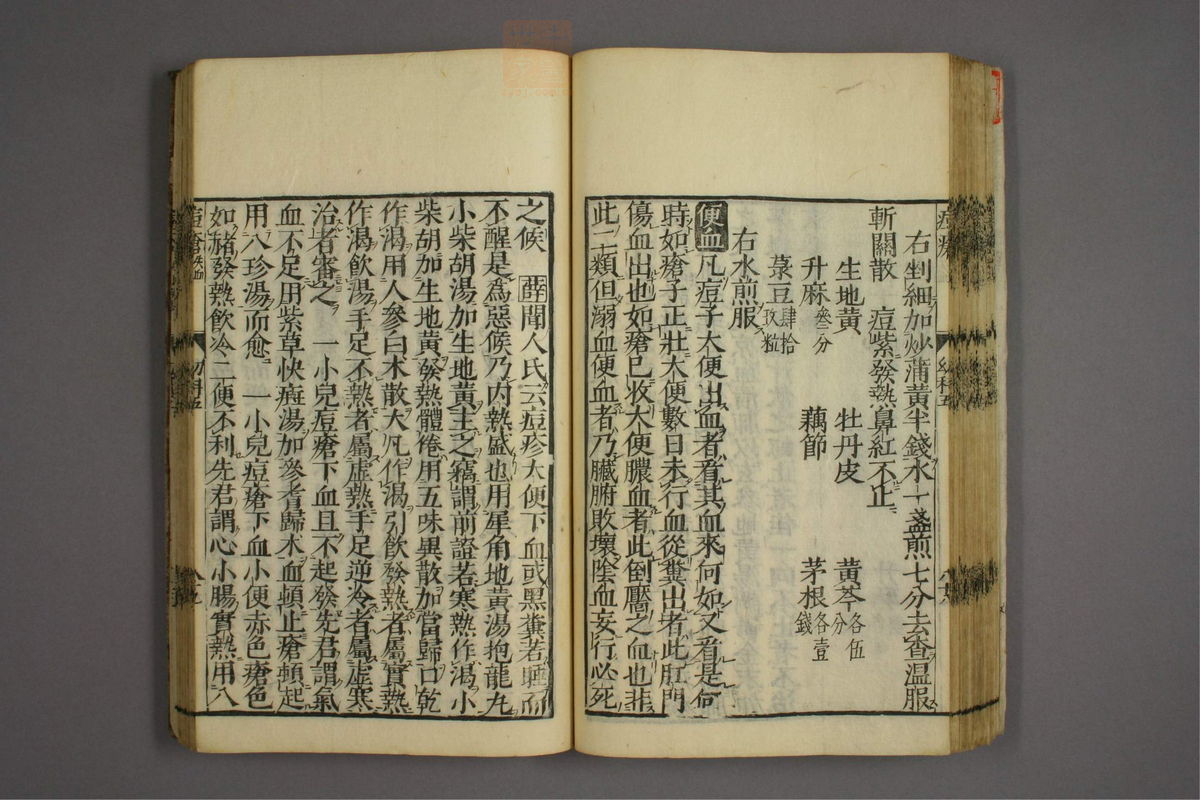 右剉細加炒蒲黃半錢水一盞煎七分去查温服
斬關散　痘紫發熱鼻紅不止
生地黃　牡丹皮　黃芩各伍分
升麻叄分　藕節　茅根各壹錢
菉豆肆拾玖粒
右水煎服
便血凡痘子大便出血者看其血來何如又看是何
時如瘡子正壯大便數日未行血從糞出者此肛門
傷血出也如瘡已收大便膿血者此倒靨之血也非
此二類但溺血便血者乃臟腑敗壞陰血妄行必死
之候　薛聞人氏云痘疹大便下血或黑糞若睡而
不醒是為惡候乃内熱盛也用犀角地黃湯抱龍丸
小柴胡湯加生地黃主之竊謂前證若寒熱作渴小
柴胡加生地黃發熱體倦用五味異散加當歸口乾
作渴用人參白术散大凡作渴引飲發熱者屬實熱
作渴飲湯手足不熱者屬虛熱手足逆冷者屬虛寒
治者審之　一小兒痘瘡下血且不起發先君謂氣
血不足用紫草快癍湯加參茋歸术血頓止瘡頓起
用八珍湯而愈　一小兒痘瘡下血小便赤色瘡色
如赭發熱飲冷二便不利先君謂心小腸實熱用八
痘瘡
幼科五